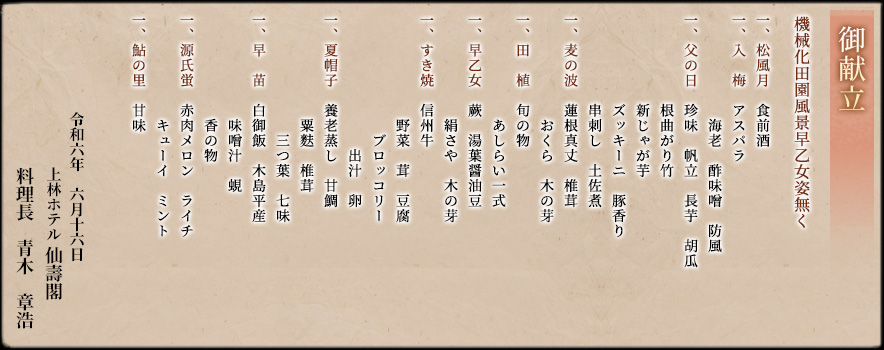 御献立
機械化田園風景早乙女姿無く
一、松風月　食前酒
一、入　梅　アスパラ
海老　酢味噌　防風
一、父の日　珍味　帆立　長芋　胡瓜
根曲がり竹
新じゃが芋
ズッキーニ　豚香り
串刺し　土佐煮
一、麦の波　蓮根真丈　椎茸
おくら　木の芽
一、田　植　旬の物
あしらい一式
一、早乙女　蕨　湯葉醤油豆
絹さや　木の芽
一、すき焼　信州牛
野菜　茸　豆腐
ブロッコリー
出汁　卵
一、夏帽子　養老蒸し　甘鯛
粟麩　椎茸
三つ葉　七味
一、早　苗　白御飯　木島平産
味噌汁　蜆
香の物
一、源氏蛍　赤肉メロン　ライチ
キューイ　ミント
一、鮎の里　甘味
令和六年　六月十六日
上林ホテル 仙壽閣
料理長　青木　章浩